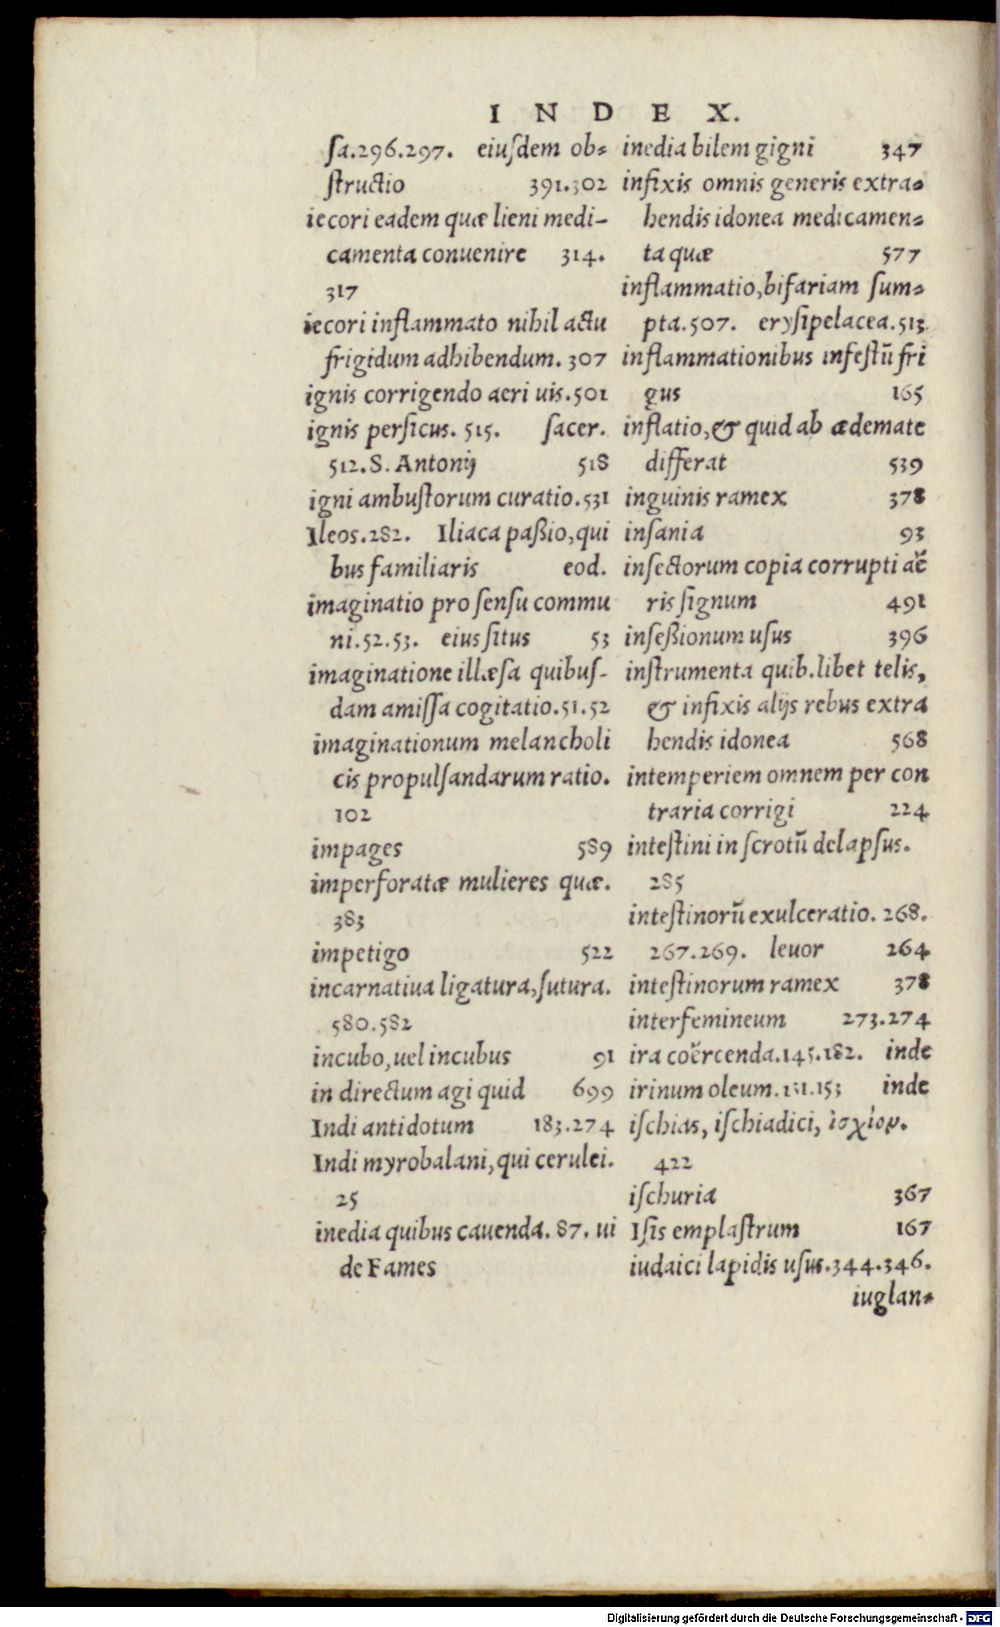 INDEX.
ſa.296.297. eiuſdem ob-
ſtructio 391.302
iecori eadem quæ lieni medi-
camenta conuenire 314.
317
iecori inflammato nihil actu
frigidum adhibendum. 307
ignis corrigendo aeri uis.501
ignis perſicus. 515. ſacer.
512. S. Antonij 518
igni ambuſtorum curatio.531
Ileos.282. Iliaca paßio,qui
bus familiaris eod.
imaginatio pro ſenſu commu
ni.52.53. eius ſitus 53
imaginatione illæſa quibuſ-
dam amiſſa cogitatio.51.52
imaginationum melancholi
cis propulſandarum ratio.
102
impages 589
imperforatæ mulieres quæ.
383
impetigo 522
incarnatiua ligatura,ſutura.
580.582
incubo,uel incubus 91
in directum agi quid 699
Indi antidotum 183.274
Indi myrobalani,qui cerulei.
25
inedia quibus cauenda. 87. ui
de Fames
inedia bilem gigni 347
infixis omnis generis extra-
hendis idonea medicamen-
ta quæ 577
inflammatio,bifariam ſum-
pta.507. eryſipelacea.513
inflammationibus infeſtũ fri
gus 165
inflatio,& quid ab œdemate
differat 539
inguinis ramex 378
inſania 93
inſectorum copia corrupti aë
ris ſignum 491
inſeßionum uſus 396
inſtrumenta quib.libet telis,
& infixis alijs rebus extra
hendis idonea 568
intemperiem omnem per con
traria corrigi 224
inteſtini in ſcrotũ delapſus.
285
inteſtinorũ exulceratio. 268.
267.269. leuor 264
inteſtinorum ramex 378
interfemineum 273.274
ira coërcenda.145.182. inde
irinum oleum.131.153 inde
iſchias, iſchiadici, ἰσχίον.
422
iſchuria 367
Iſis emplaſtrum 167
iudaici lapidis uſus.344.346.
iuglan-
Digitalisierung gefördert durch die Deutsche Forschungsgemeinschaft - DFG